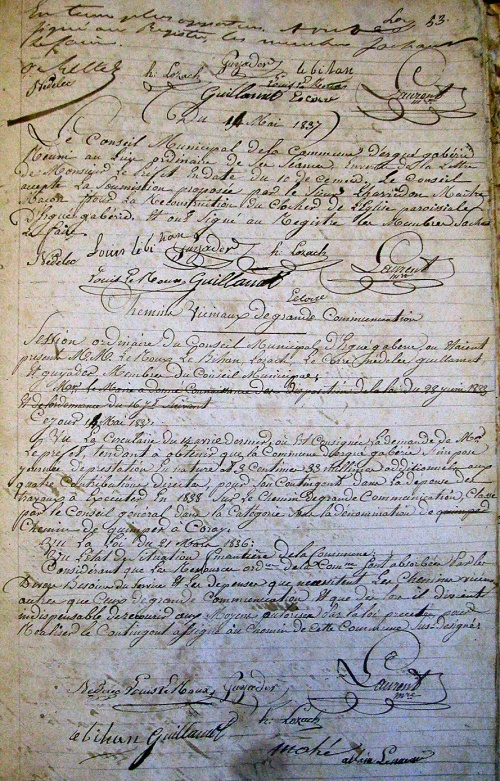 53.
En
signé au Registre, les membres sachant
Le faire.
h. Lozach Guyader le bihan
Nédélec Louis Le Guillaumet Laurent
mre
Ce jour 14 Mai 1837
Le Conseil Municipal de la Commune d'ergué gabéric
Réuni au Lieu ordinaire de ses Séances, en vertu de la Lettre
de Monsieur Le Préfet en date du 10 de ce mois, Le Conseil
accepte La Soumission proposée par le Sieur Maitre
Maçon pour La Reconstruction du Clocher de L'Eglise paroissiale
d'Ergué gabéric. Et ont Signé au Registre les Membres Sachant
Le faire
Nédélec Louis le bihan Guyader h. Lozach Laurent
mre
Louis Le Guillaumet
Chemins Vicinaux de grande Communication
Session ordinaire du Conseil Municipal d'Ergué gabéric, ou étaient
présent M.M. Le Le Bihan, Lozach, Nédélec guillaumet
et guyader Membres du Conseil Municipal,
Mr. Le Maire a donné Connaissance des disposition de la loi du 28 juin 1833
et de l'ordonnance du 16
Ce jour 14 Mai 1837.
Vu La Circulaire du 14 avril dernier, où Est Consignée La demande de Mr.
Le préfet, tendant à obtenir que la Commune d'ergué gabéric S'impose
journées de prestation En nature et 3 Centimes 33 millièmes additionnels aux
quatre Contributions directes, pour son Contingent dans La dépense des
travaux à Exécuter En 1838 Sur Le Chemin de grande Communication, Classé
par le Conseil général dans la Catégorie Sous la Dénomination de
Chemin de quimper à Coray.
Vu La Loi du 21 Mai 1836:
Vu L'Etat de Situation financière de la Commune;
Considérant que Les Ressources ordres de la Comne sont absorbées Par les
Divers Besoins du Service et Les dépenses que nécessitent Les Chemins vicinaux
autres que Ceux de grande Communication Et que dès lors il devient
indispensable de recourir aux Moyens autorisés par la loi précitée pour
Réaliser Le Contingent assigné au Chemin de Cette Commune Sus-désigné
Nédélec Louis Le Guyader, Laurent
mre
le bihan Guillaumet h. Lozach
mahé